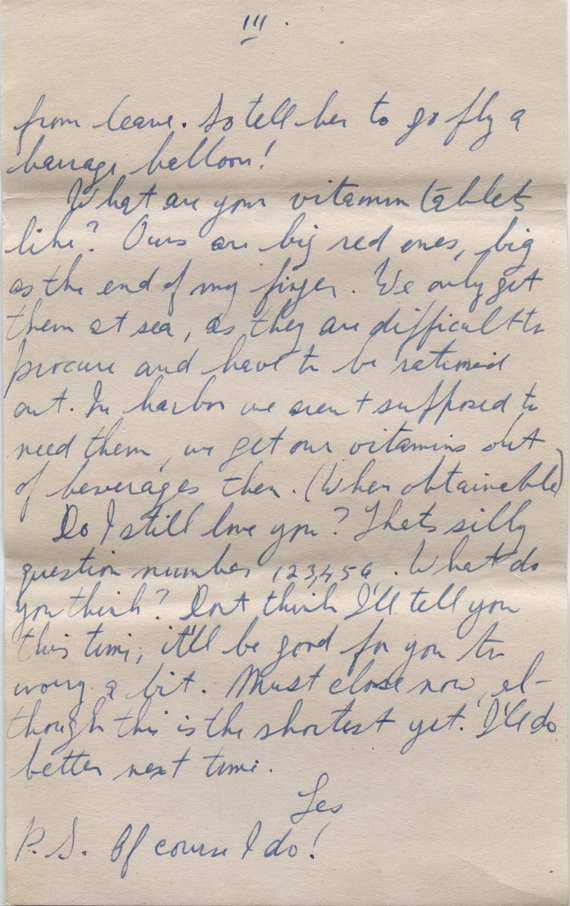 III.
from leave. So tell her to go fly a
barrage balloon!
What are your vitamin tablets
like? Ours are big red ones, big
as the end of my finger. We only get
them at sea, as they are difficult to
procure and have to be rationed
out. In harbor we aren't supposed to
need them, we get our vitamins out
of beverages then. (When obtainable)
Do I still love you? Thats silly
question number 123,456. What do
you think? Dont think I'll tell you
this time, it'll be good for you to
worry a bit. Must close now, al-
though this is the shortest yet. I'll do
better next time.
Les
P.S. Of course I do!